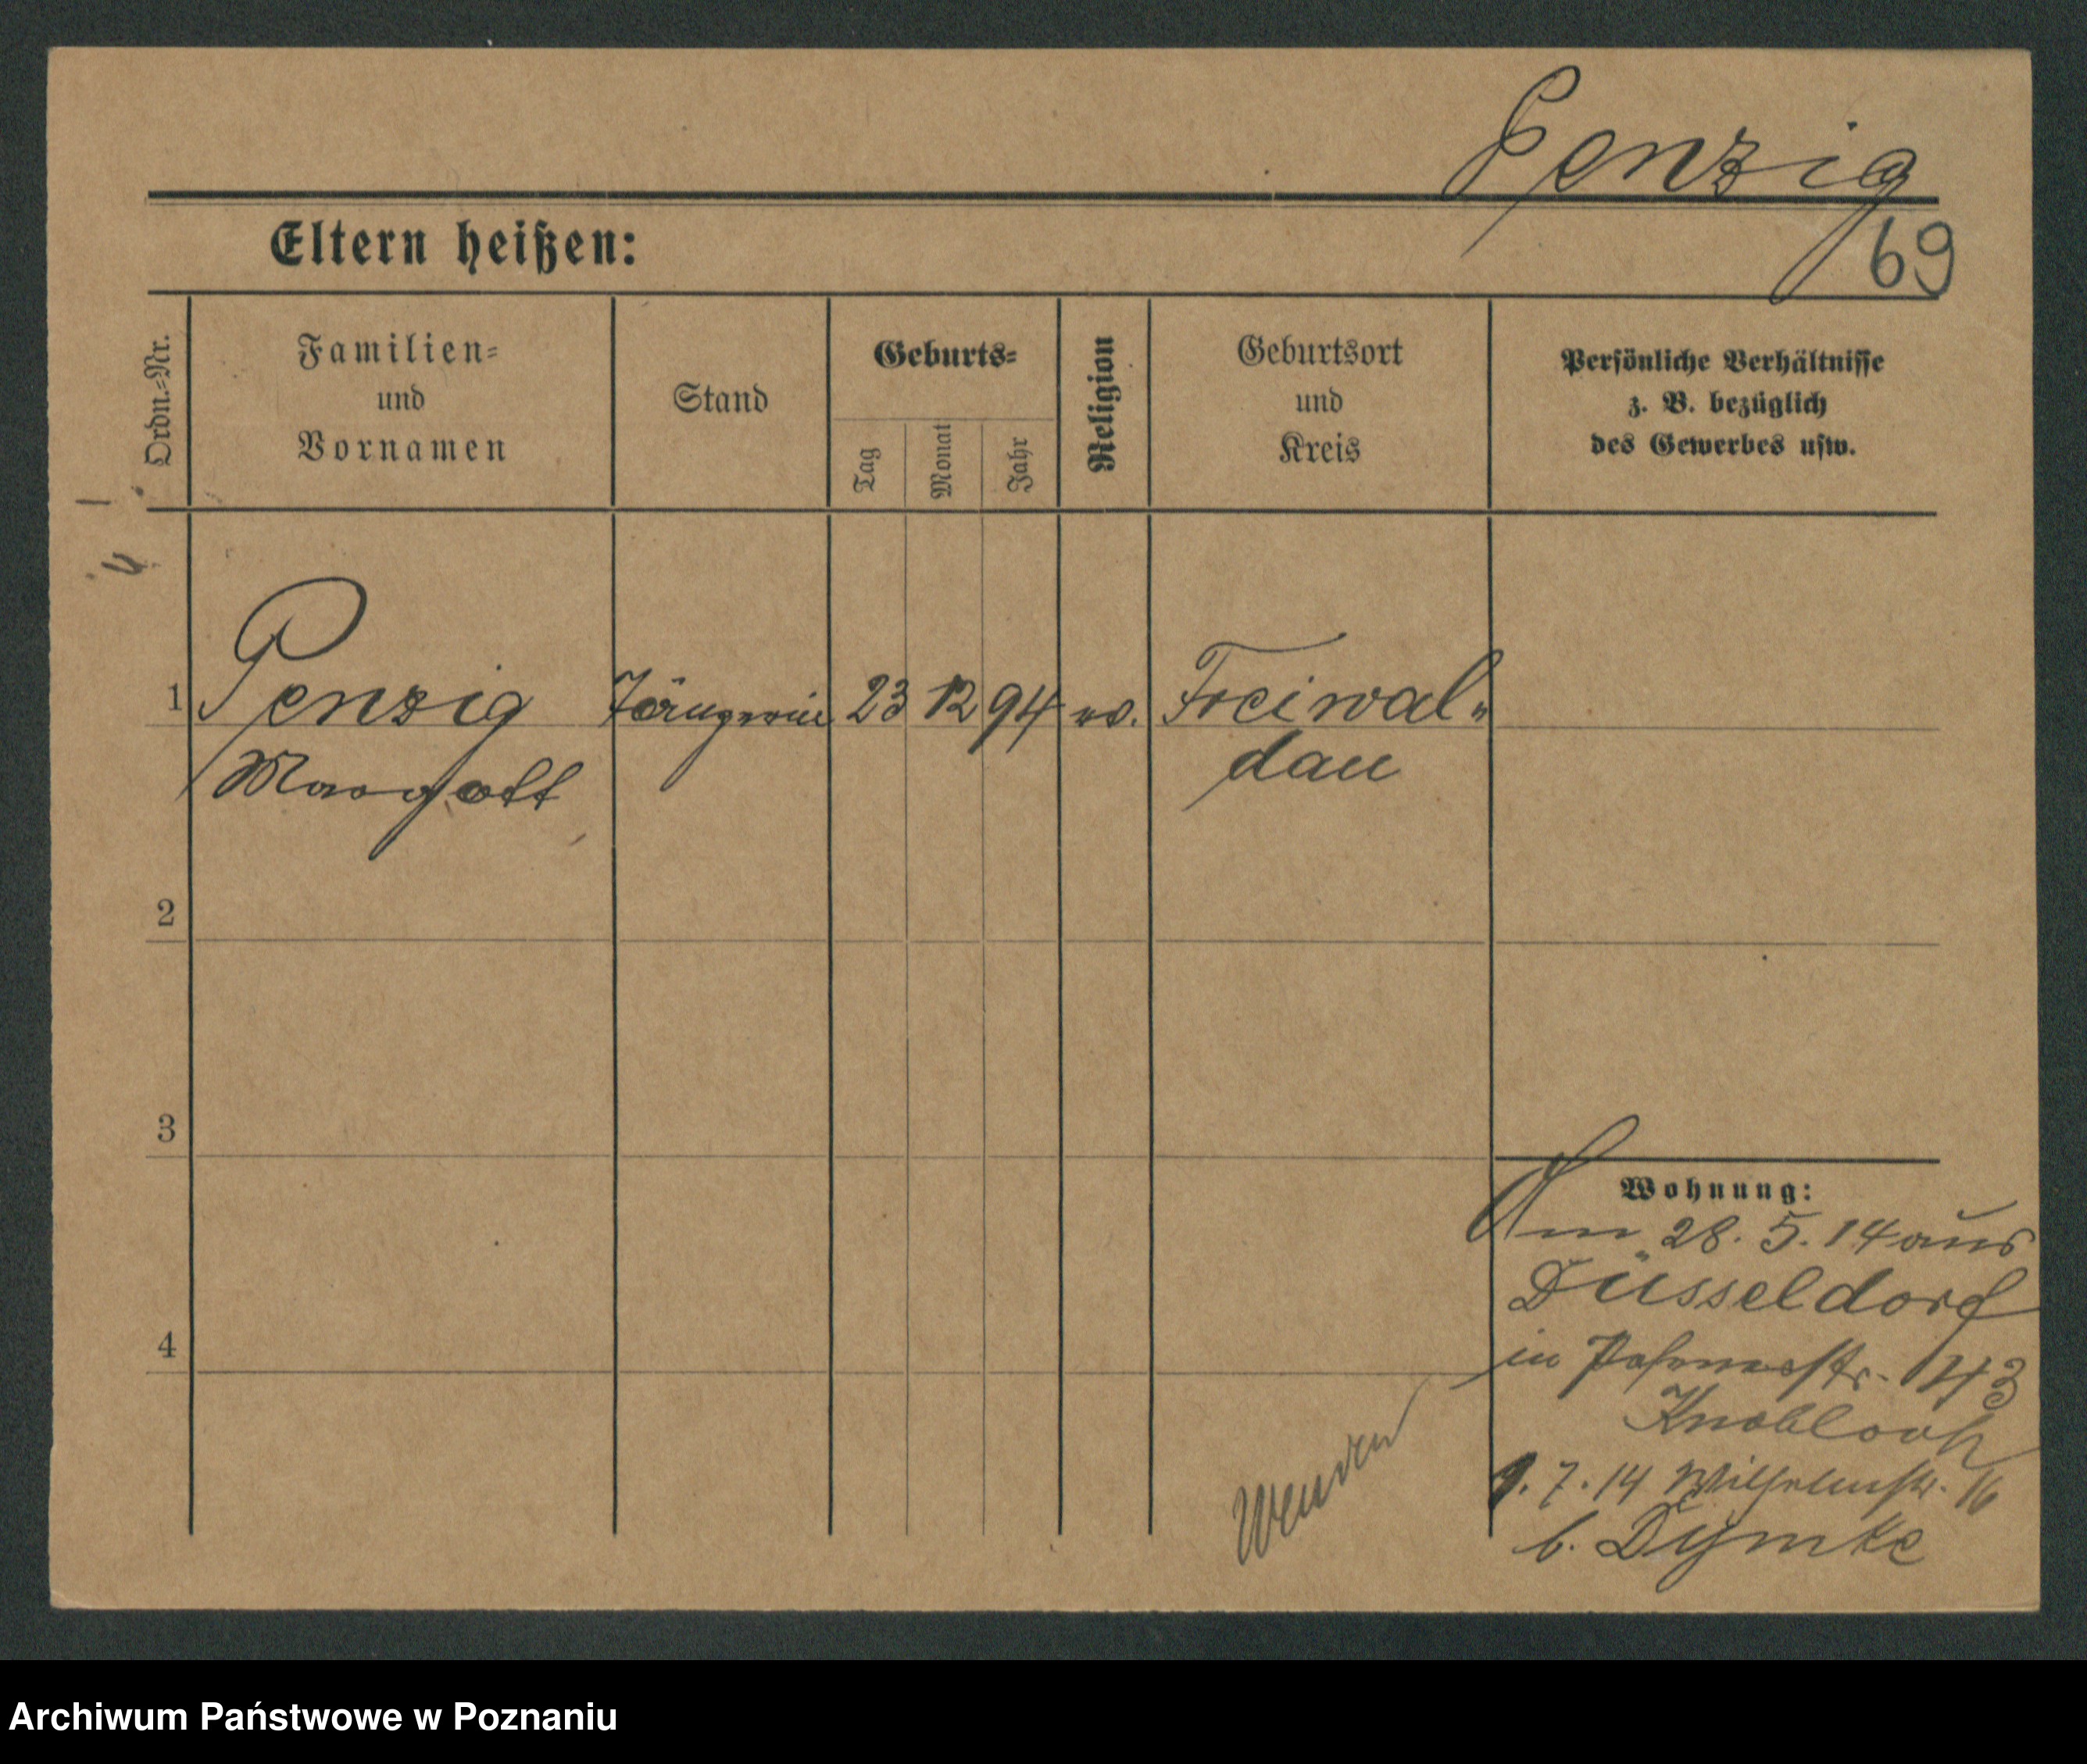 Penzig
69
Eltern heißen:
Ordn.-Nr.
Familien-
und
Vornamen
Stand
Geburts-
Tag
Monat
Jahr
Religion
Geburtsort
und
Kreis
Persönliche Verhältnisse
z. B. bezüglich
des Gewerbes usw.
1 Penzig 23 12 94 ev. Freiwal-
Margott dau
2
3
4
Wohnung:
Am 28. 5. 14 aus
Düsseldorf
in 143
Knobloch
9. 7. 14 Wilhelmstr. 16
b. Dymke
Wenden
Archiwum Państwowe w Poznaniu